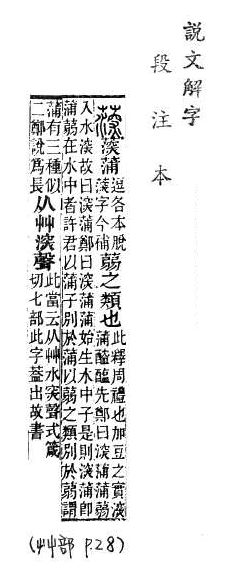 說文解字
段注本
㴱蒲逗各本脫㴱字今補蒻之類也此釋周禮也加豆之實㴱蒲醓醢先鄭曰㴱蒲蒲蒻
入水㴱故曰㴱蒲鄭曰㴱蒲蒲始生水中子是則㴱蒲卽蒲蒻在水中者許君以蒲子別於蒲以蒻之類別於蒻謂
蒲有三種似二鄭說爲長从艸㴱聲此當云从艸水突聲式箴切七部此字葢出故書
(艸部 P.28)